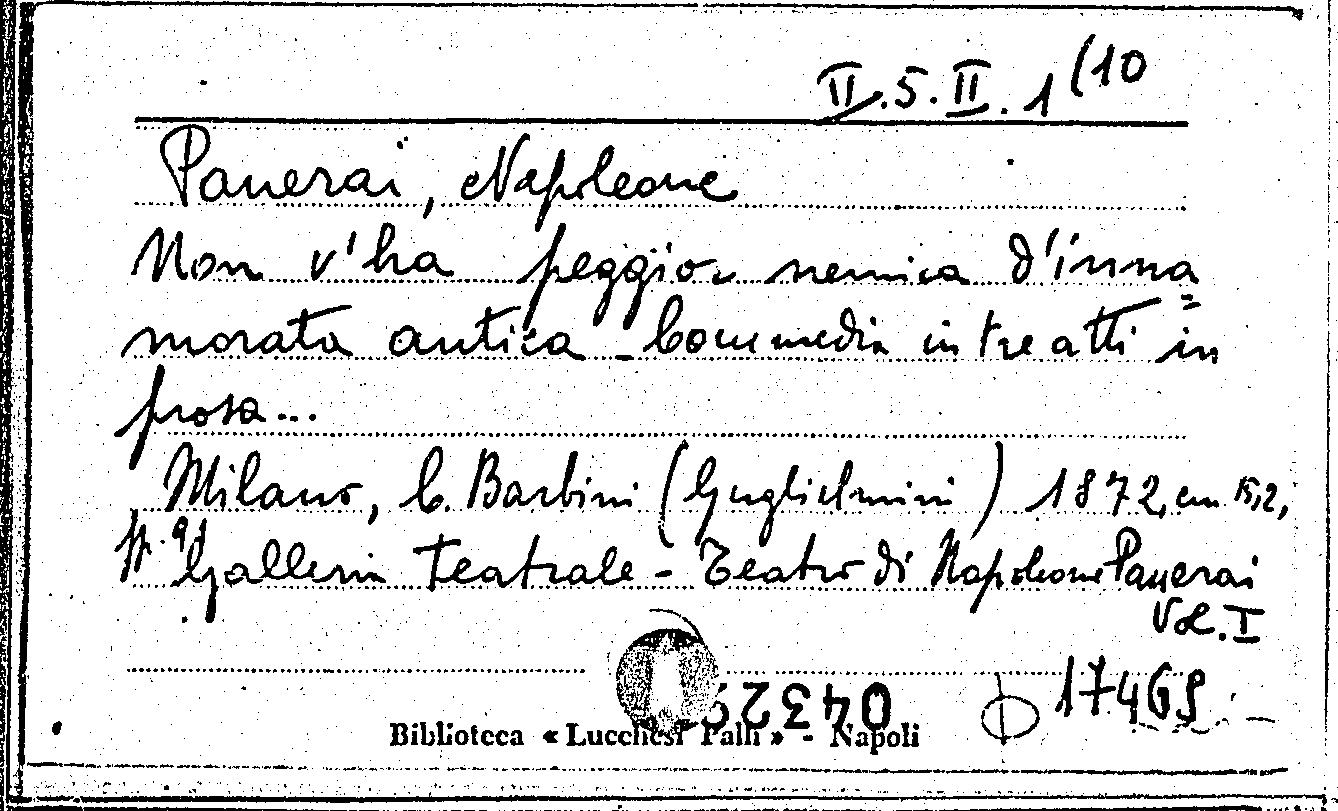 II.5.II.1(10
Panerai, Napoleone
Non v'ha peggior nemica d'inna=
morata antica - Commedia in tre atti in
prosa...
Milano, C. Barbini (Guglielmini) 1872, cm 15,2,
pp. 91
Galleria Teatrale - Teatro di Napoleone Panerai
Vol. I
17469
Biblioteca « Lucchesi Palli » - Napoli